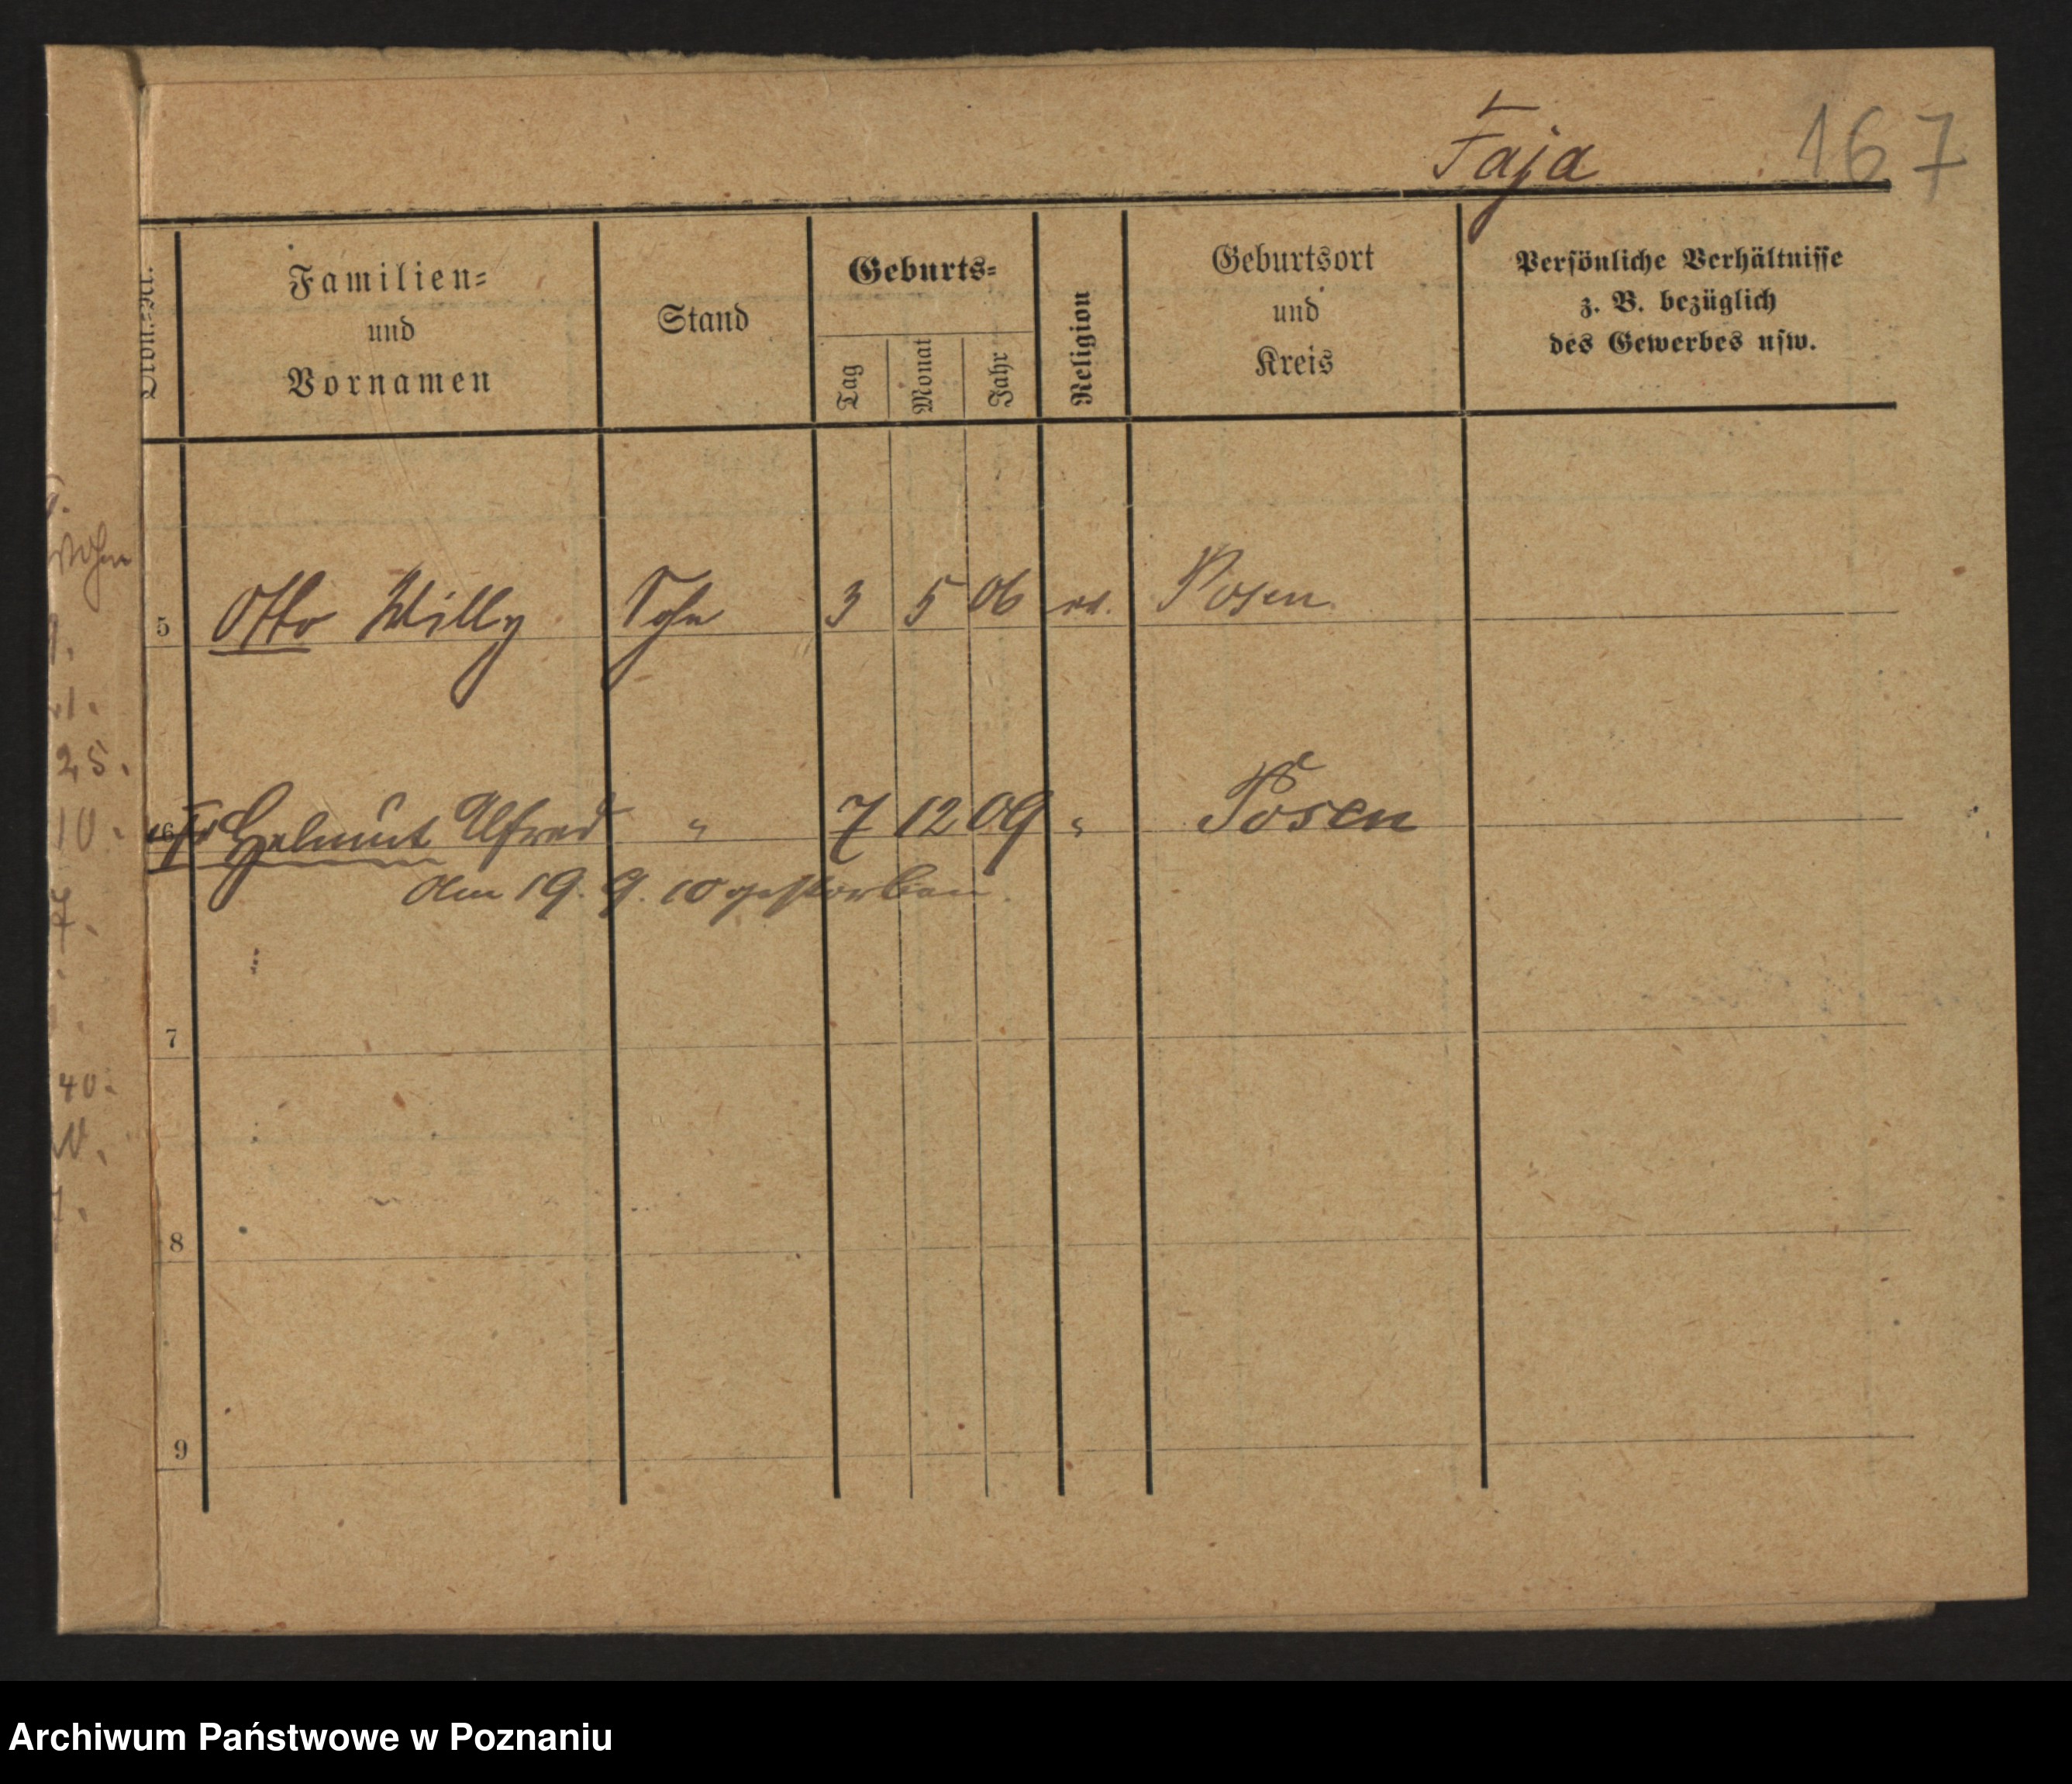 Faja 167
Ordn.-Nr.
Familien-
und
Vornamen
Stand
Geburts-
Tag Monat Jahr
Religion
Geburtsort
und
Kreis
Persönliche Verhältnisse
z. B. bezüglich
des Gewerbes usw.
5 Otto Willy Sohn 3 5 06 ev. Posen
6 Helmut Alfred " 7 12 09 " Posen
Am 19. 9. 10 gestorben
7
8
9
25.
10.
7.
40.
Archiwum Państwowe w Poznaniu